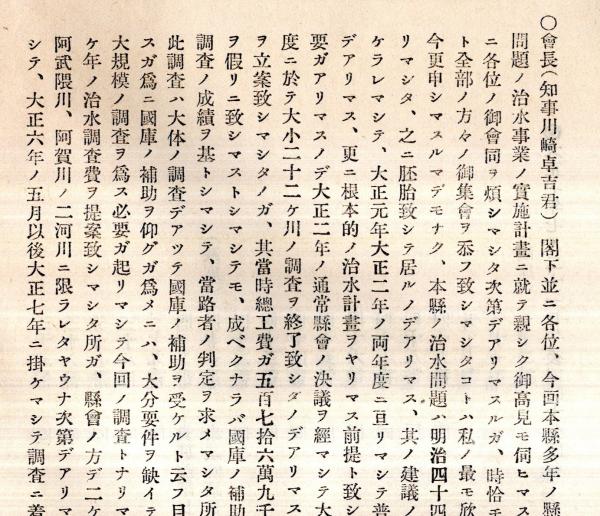 〇會長(知事川崎卓吉君) 閣下並ニ各位、今囘本縣多年ノ縣
問題ノ治水事業ノ實施計畫ニ就テ親シク御高見モ伺ヒマス
ニ各位ノ御會同ヲ煩シマシタ次第デアリマスルガ、時恰モ
ト全部ノ方々ノ御集會ヲ忝フ致シマシタコトハ私ノ最モ欣
今更申シマスルマデモナク、本縣ノ治水問題ハ明治四十四
リマシタ、之ニ胚胎致シテ居ルノデアリマス、其ノ建議ノ
ケラレマシテ、大正元年大正二年ノ両年度ニ亘リマシテ普
デアリマス、更ニ根本的ノ治水計畫ヲヤリマス前提ト致シ
要ガアリマスノデ大正二年ノ通常縣會ノ決議ヲ經マシテ大
度ニ於テ大小二十二ケ川ノ調査ヲ終了致シダノデアリマス
ヲ立案致シマシタノガ、其當時總工費ガ五百七拾六萬九千
ヲ假リニ致シマストシマシテモ、成ベクナラバ國庫ノ補助
調査ノ成績ヲ基トシマシテ、當路者ノ判定ヲ求メマシタ所
此調査ハ大体ノ調査デアツテ國庫ノ補助ヲ受ケルト云フ目
スガ爲ニ國庫ノ補助ヲ仰グガ爲メニハ、大分要件ヲ缺イテ
大規模ノ調査ヲ爲ス必要ガ起リマシテ今回ノ調査トナリマ
ケ年ノ治水調査費ヲ提案致シマシタ所ガ、縣會ノ方デ二ケ
阿武隈川、阿賀川ノ二河川ニ限ラレタヤウナ次第デアリマ
シテ、大正六年ノ五月以後大正七年ニ掛ケマシテ調査ニ着